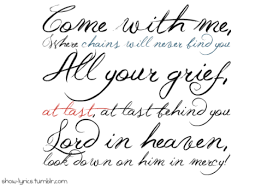 Come with me,
Where chains will never find you
All your grief,
at last, at last behind you
Lord in heaven,
look down on him in mercy!
show-lyrics.tumblr.com